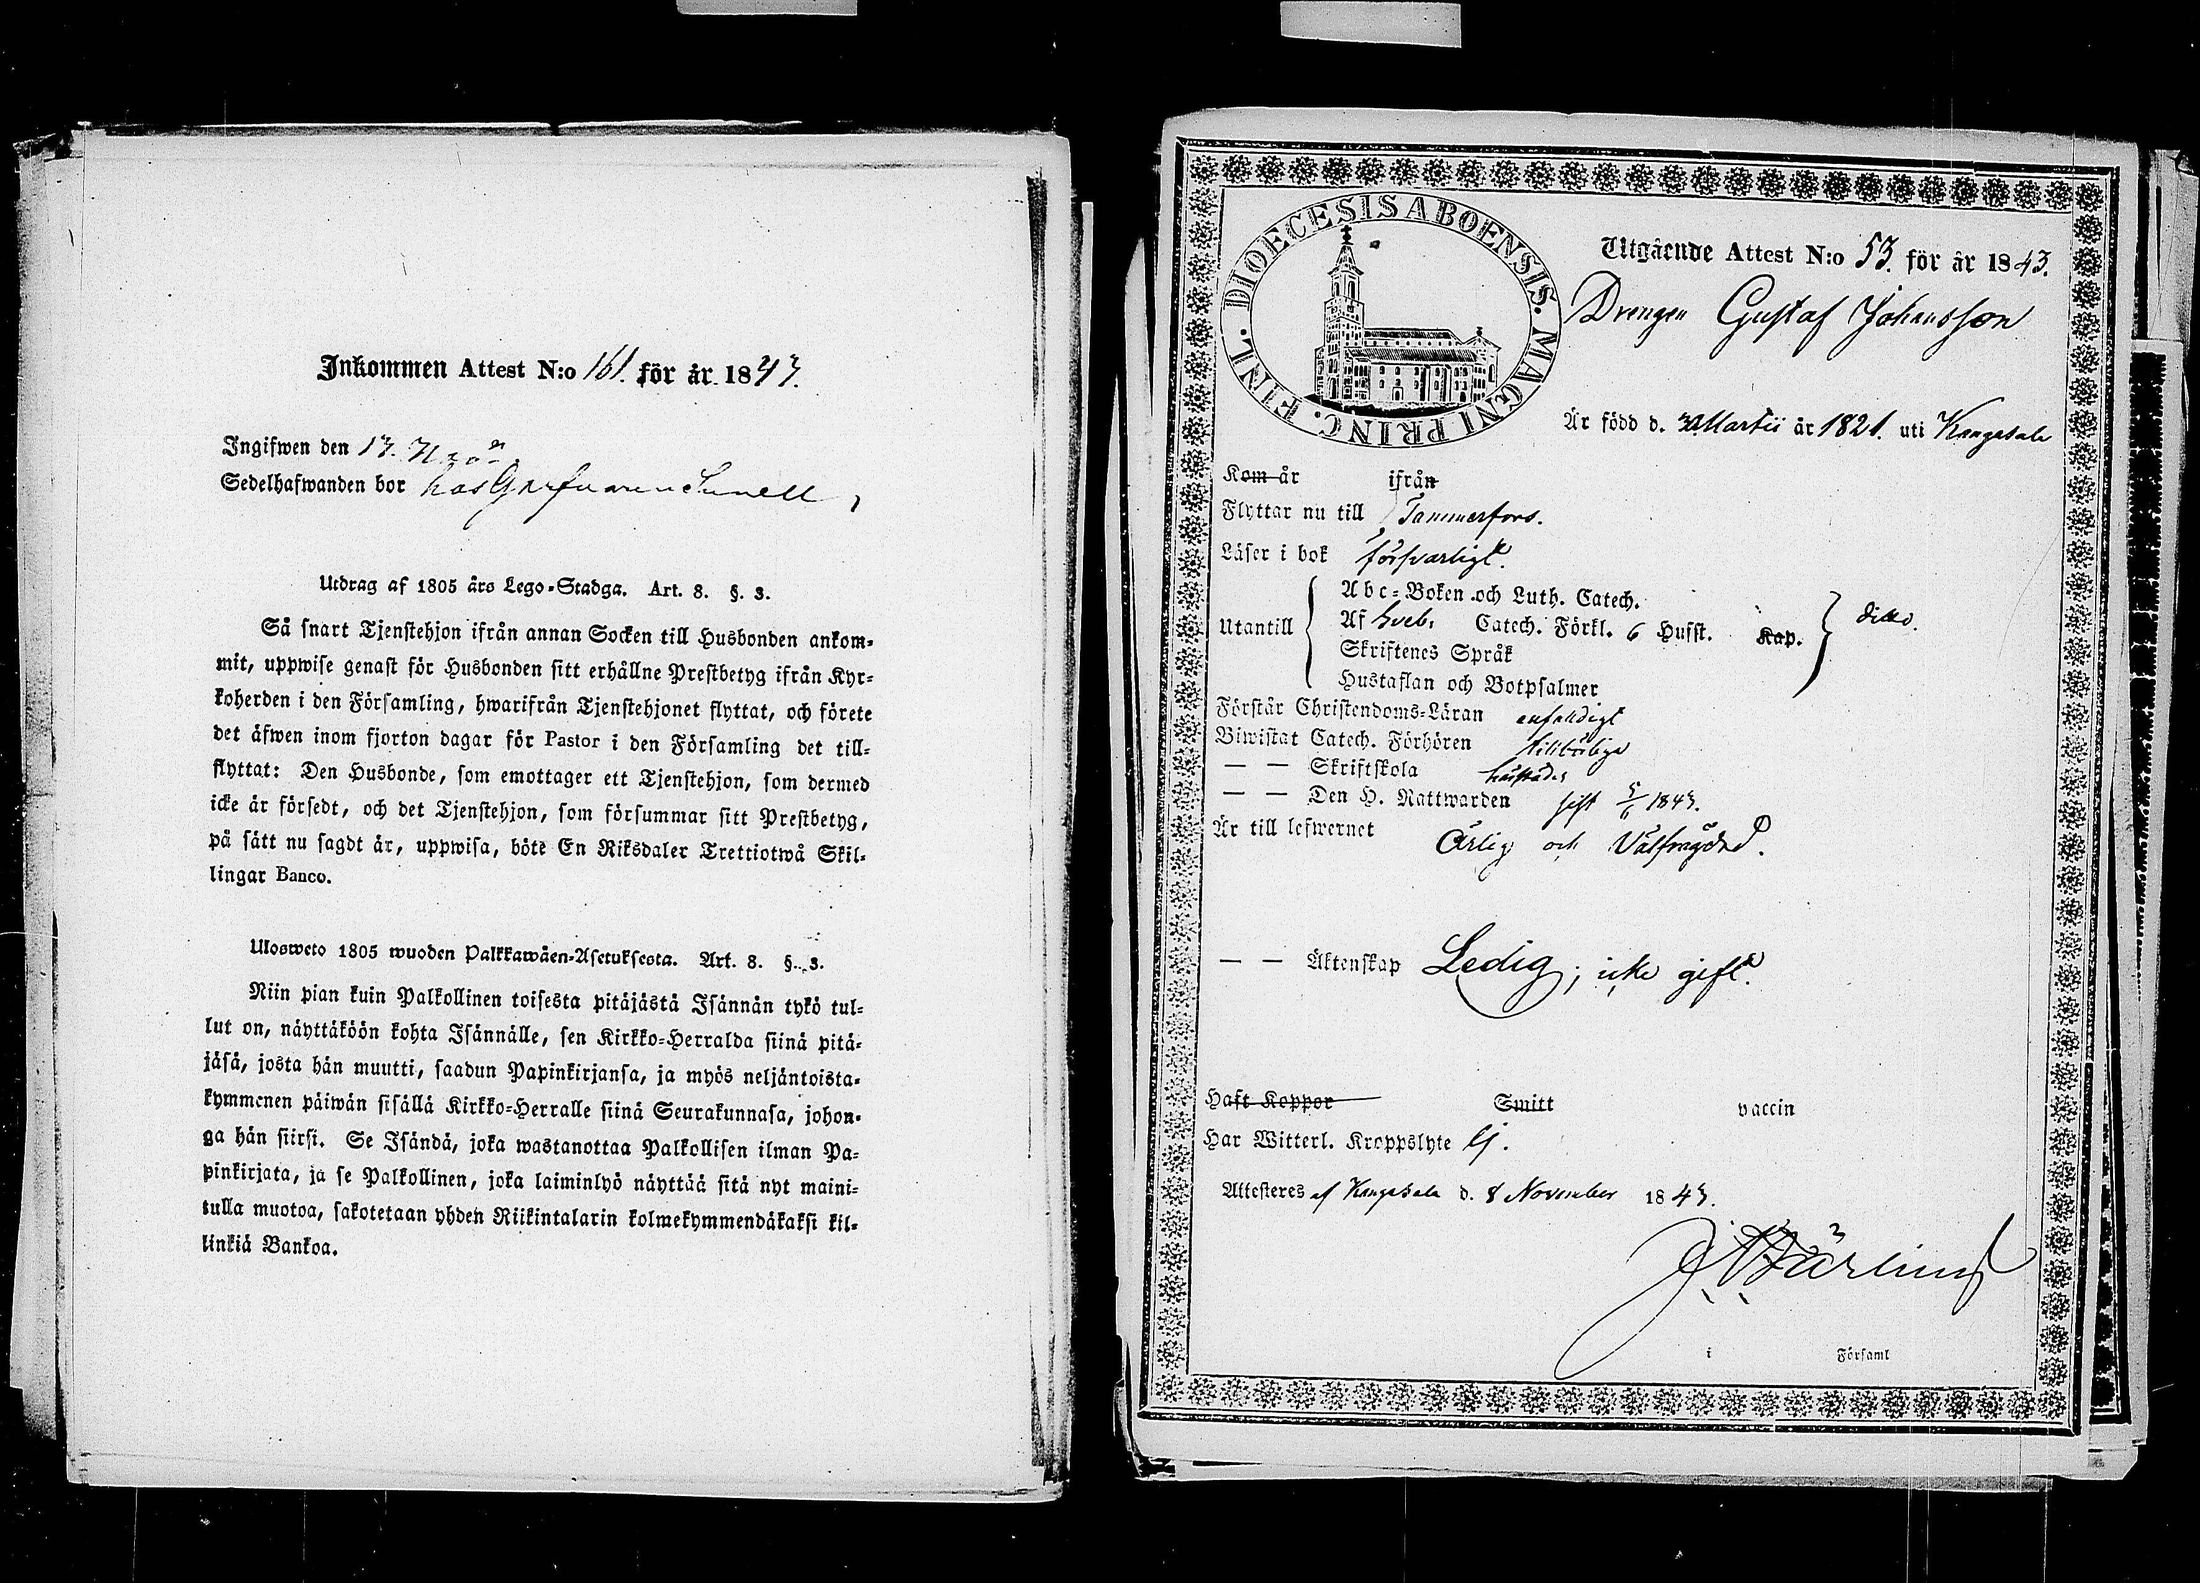 Inkommen Attest N:o 161. för år 1843.
Ingifwen den 13. Nov
Sedelhafwanden bor hos Garfwaren Sunell
Utdrag af 1805 års Lego-Stadga. Art. 8. §. 3.
Så snart Tjenstehjon ifrån annan Socken till Husbonden ankom-
mit, uppwise genast för Husbonden sitt erhållne Prestbetyg ifrån Kyr-
koherden i den Församling, hwarifrån Tjenstehjonet flyttat, och förete
det äfwen inom fjorton dagar för Pastor i den Församling det till-
flyttat: Den Husbonde, som emottager ett Tjenstehjon, som dermed
icke är försedt, och det Tjenstehjon, som försummar sitt Prestbetyg,
på sätt nu sagdt är, uppwisa, böte En Riksdaler Trettiotwå Skil-
lingar Banco.
Ulosweto 1805 wuoden Palkkawäen-Asetuksesta. Art. 8. §. 3.
Niin pian kuin Palkollinen toisesta pitäjästä Isännän tykö tul-
lut on, näyttäköön kohta Isännälle, sen Kirkko-Herralda siinä pitä-
jäsä, josta hän muutti, saadun Papinkirjansa, ja myös neljäntoista-
kymmenen päiwän sisällä Kirkko-Herralle siinä Seurakunnasa, johon-
ga hän siirsi. Se Isändä, joka wastanottaa Palkollisen ilman Pa-
pinkirjata, ja se Palkollinen, joka laiminlyö näyttää sitä nyt maini-
tulla muotoa, sakotetaan yhden Riikintalarin kolmekymmendäkaksi kil-
linkiä Bankoa.
FINL. DIOECESIS ABOENSIS. MAGNI PRINC.
Utgående Attest N:o 53. för år 1843.
Drengen Gustaf Johansson
Är född d. 30 Martii år 1821. uti Kangasala
Kom år ifrån
Flyttar nu till Tammerfors.
Läser i bok försvarligt.
Utantill
Abc-Boken och Luth. Catech.
Af Sveb. Catech. Förkl. 6 Hufst. Kap.
Skriftenes Språk
Hustaflan och Botpsalmer
ditto.
Förstår Christendoms-Läran enfaldigt
Biwistat Catech. Förhören tillbörlige
— — Skriftskola härstädes
— — Den H. Nattwarden sist 5/11 1843.
Är till lefwernet Ärlig och Välfrägdad.
— — Äktenskap Ledig; icke gift.
Haft Koppor Smitt vaccin
Har Witterl. Kroppslyte Ej.
Attesteres af Kangasala d. 8 November 1843.
i Församl